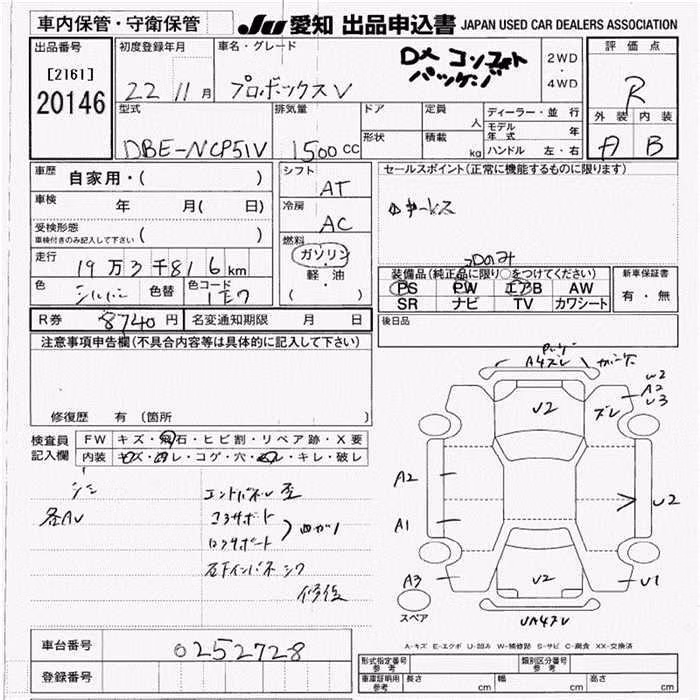 車内保管・守衛保管 JU 愛知 出品申込書 JAPAN USED CAR DEALERS ASSOCIATION
出品番号 初度登録年月 車名・グレード 評価点
[2161]
20146
22 11月 プロボックスV DX コンフォートパッケージ 2WD・4WD R
型式 排気量 ドア 定員 人 ディーラー・並行 外装 内装
DBE-NCP51V 1500cc 形状 積載 kg モデル年式 年 A B
ハンドル 左・右
車歴 自家用・( ) シフト AT セールスポイント(正常に機能するものに限ります)
車検 年 月( 日) 冷房 AC
受検形態 ( )
車検付きのみ記入して下さい
燃料 ガソリン・軽油 ( )
走行 19万3千816km
CDのみ
装備品(純正品に限り○をつけてください) 新車保証書
色 シルバー 色替 色コード 1E7
PS PW エアB AW 有・無
SR ナビ TV カワシート
R券 8740円 名変通知期限 月 日 後日品
注意事項申告欄(不具合内容等は具体的に記入して下さい)
修復歴 有 (箇所
検査員記入欄 FW キズ・飛石・ヒビ割・リペア跡・X要
内装 キズ・汚レ・コゲ・穴・スレ・キレ・破レ
シミ
各AU
エンドパネル歪
コアサポート
ロアサポート
曲がり
右下インパネ シワ
修復
A4ズレ
U2
ズレ
W2
A2
U3
A2
U2
A1
A3
U2
U1
スペア
UA4ズレ
A-キズ E-エクボ U-凹み W-補修跡 S-サビ C-腐食 XX-交換済
車台番号 0252728
登録番号
型式指定番号 参考 類別区分番号 参考
車庫証明用 参考 長さ cm 幅 cm 高さ cm